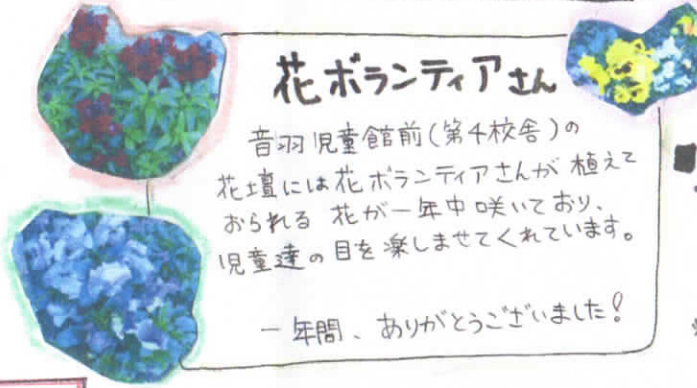 花ボランティアさん
音羽児童館前(第4校舎)の
花壇には花ボランティアさんが植えて
おられる花が一年中咲いており、
児童達の目を楽しませてくれています。
一年間、ありがとうございました!